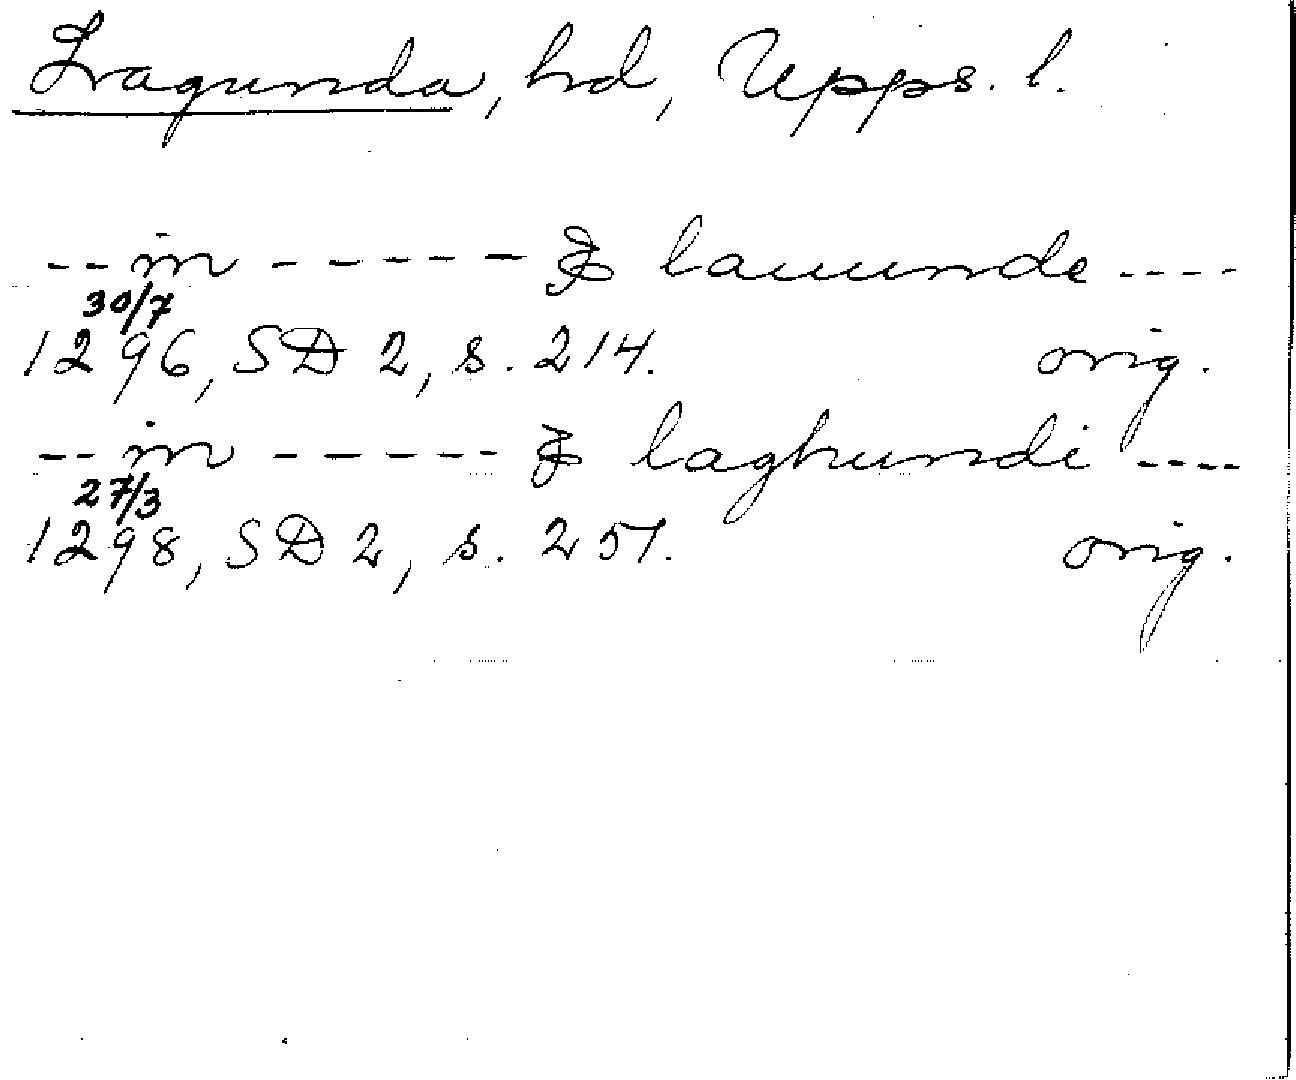 Lagunda, hd, Upps. l.
-- in ----- & lauunde ----
30/7
1296, SD 2, s. 214. orig.
-- in ----- & laghundi ----
27/3
1298, SD 2, s. 251. orig.